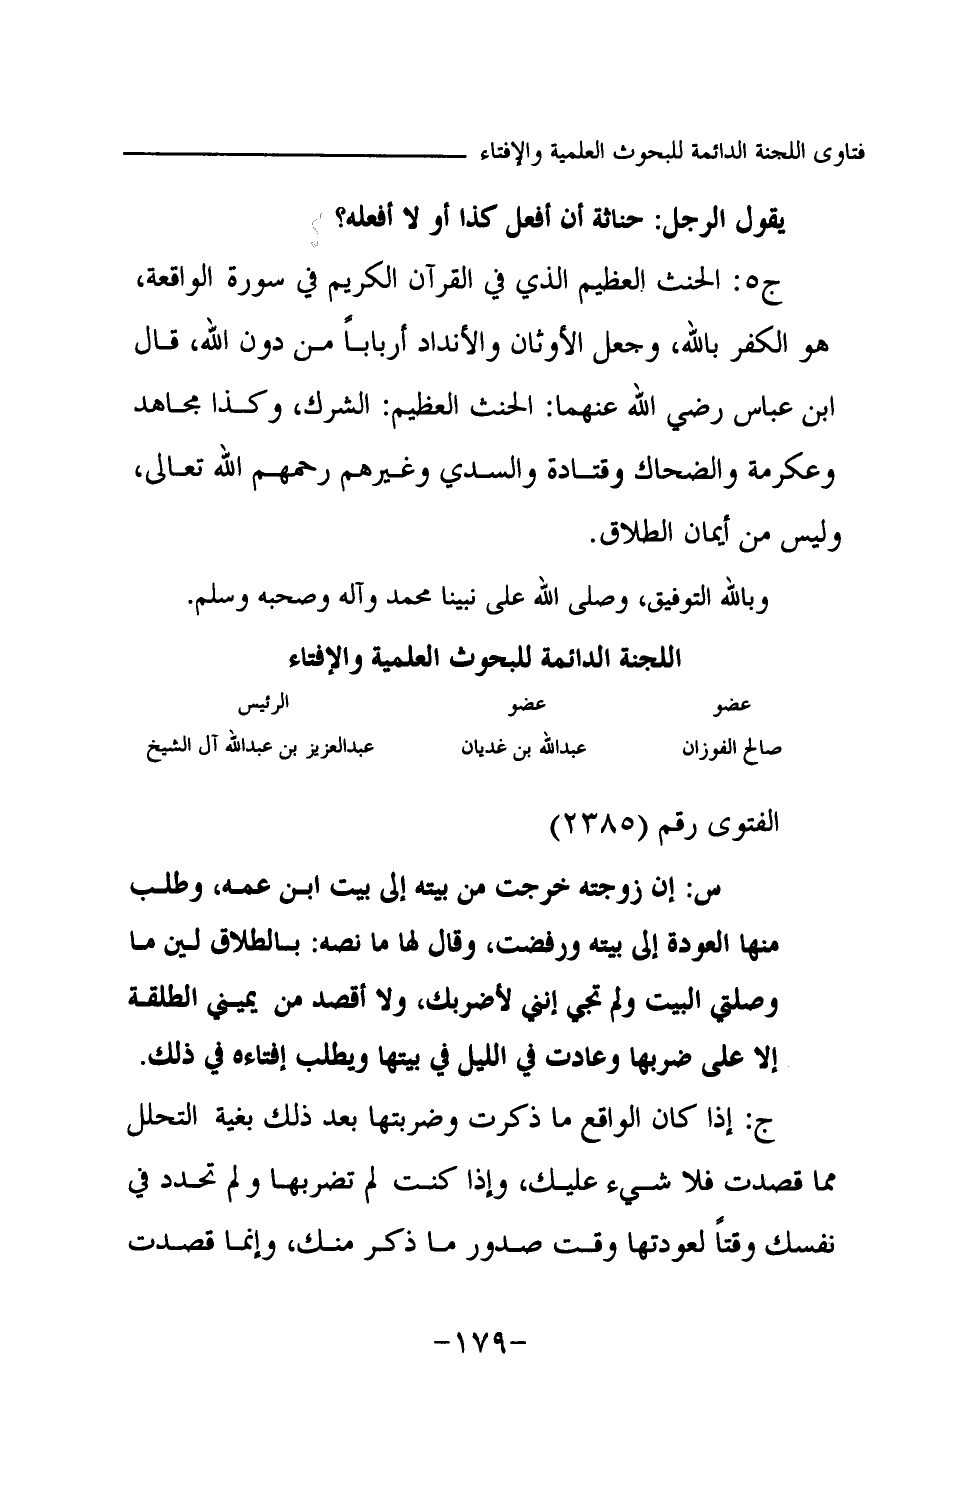 فتاوى اللجنة الدائمة للبحوث العلمية والإفتاء
يقول الرجل: حناثة أن أفعل كذا أو لا أفعله؟
ج٥: الحنث العظيم الذي في القرآن الكريم في سورة الواقعة،
هو الكفر بالله، وجعل الأوثان والأنداد أرباباً من دون الله، قال
ابن عباس رضي الله عنهما: الحنث العظيم: الشرك، وكذا مجاهد
وعكرمة والضحاك وقتادة والسدي وغيرهم رحمهم الله تعالى،
وليس من أيمان الطلاق.
وبالله التوفيق، وصلى الله على نبينا محمد وآله وصحبه وسلم.
اللجنة الدائمة للبحوث العلمية والإفتاء
عضو عضو الرئيس
صالح الفوزان عبدالله بن غديان عبدالعزيز بن عبدالله آل الشيخ
الفتوى رقم (٢٣٨٥)
س: إن زوجته خرجت من بيته إلى بيت ابن عمه، وطلب
منها العودة إلى بيته ورفضت، وقال لها ما نصه: بالطلاق لين ما
وصلتي البيت ولم تجي إنني لأضربك، ولا أقصد من يميني الطلقة
إلا على ضربها وعادت في الليل في بيتها ويطلب إفتاءه في ذلك.
ج: إذا كان الواقع ما ذكرت وضربتها بعد ذلك بغية التحلل
مما قصدت فلا شيء عليك، وإذا كنت لم تضربها ولم تحدد في
نفسك وقتاً لعودتها وقت صدور ما ذكر منك، وإنما قصدت
-١٧٩-